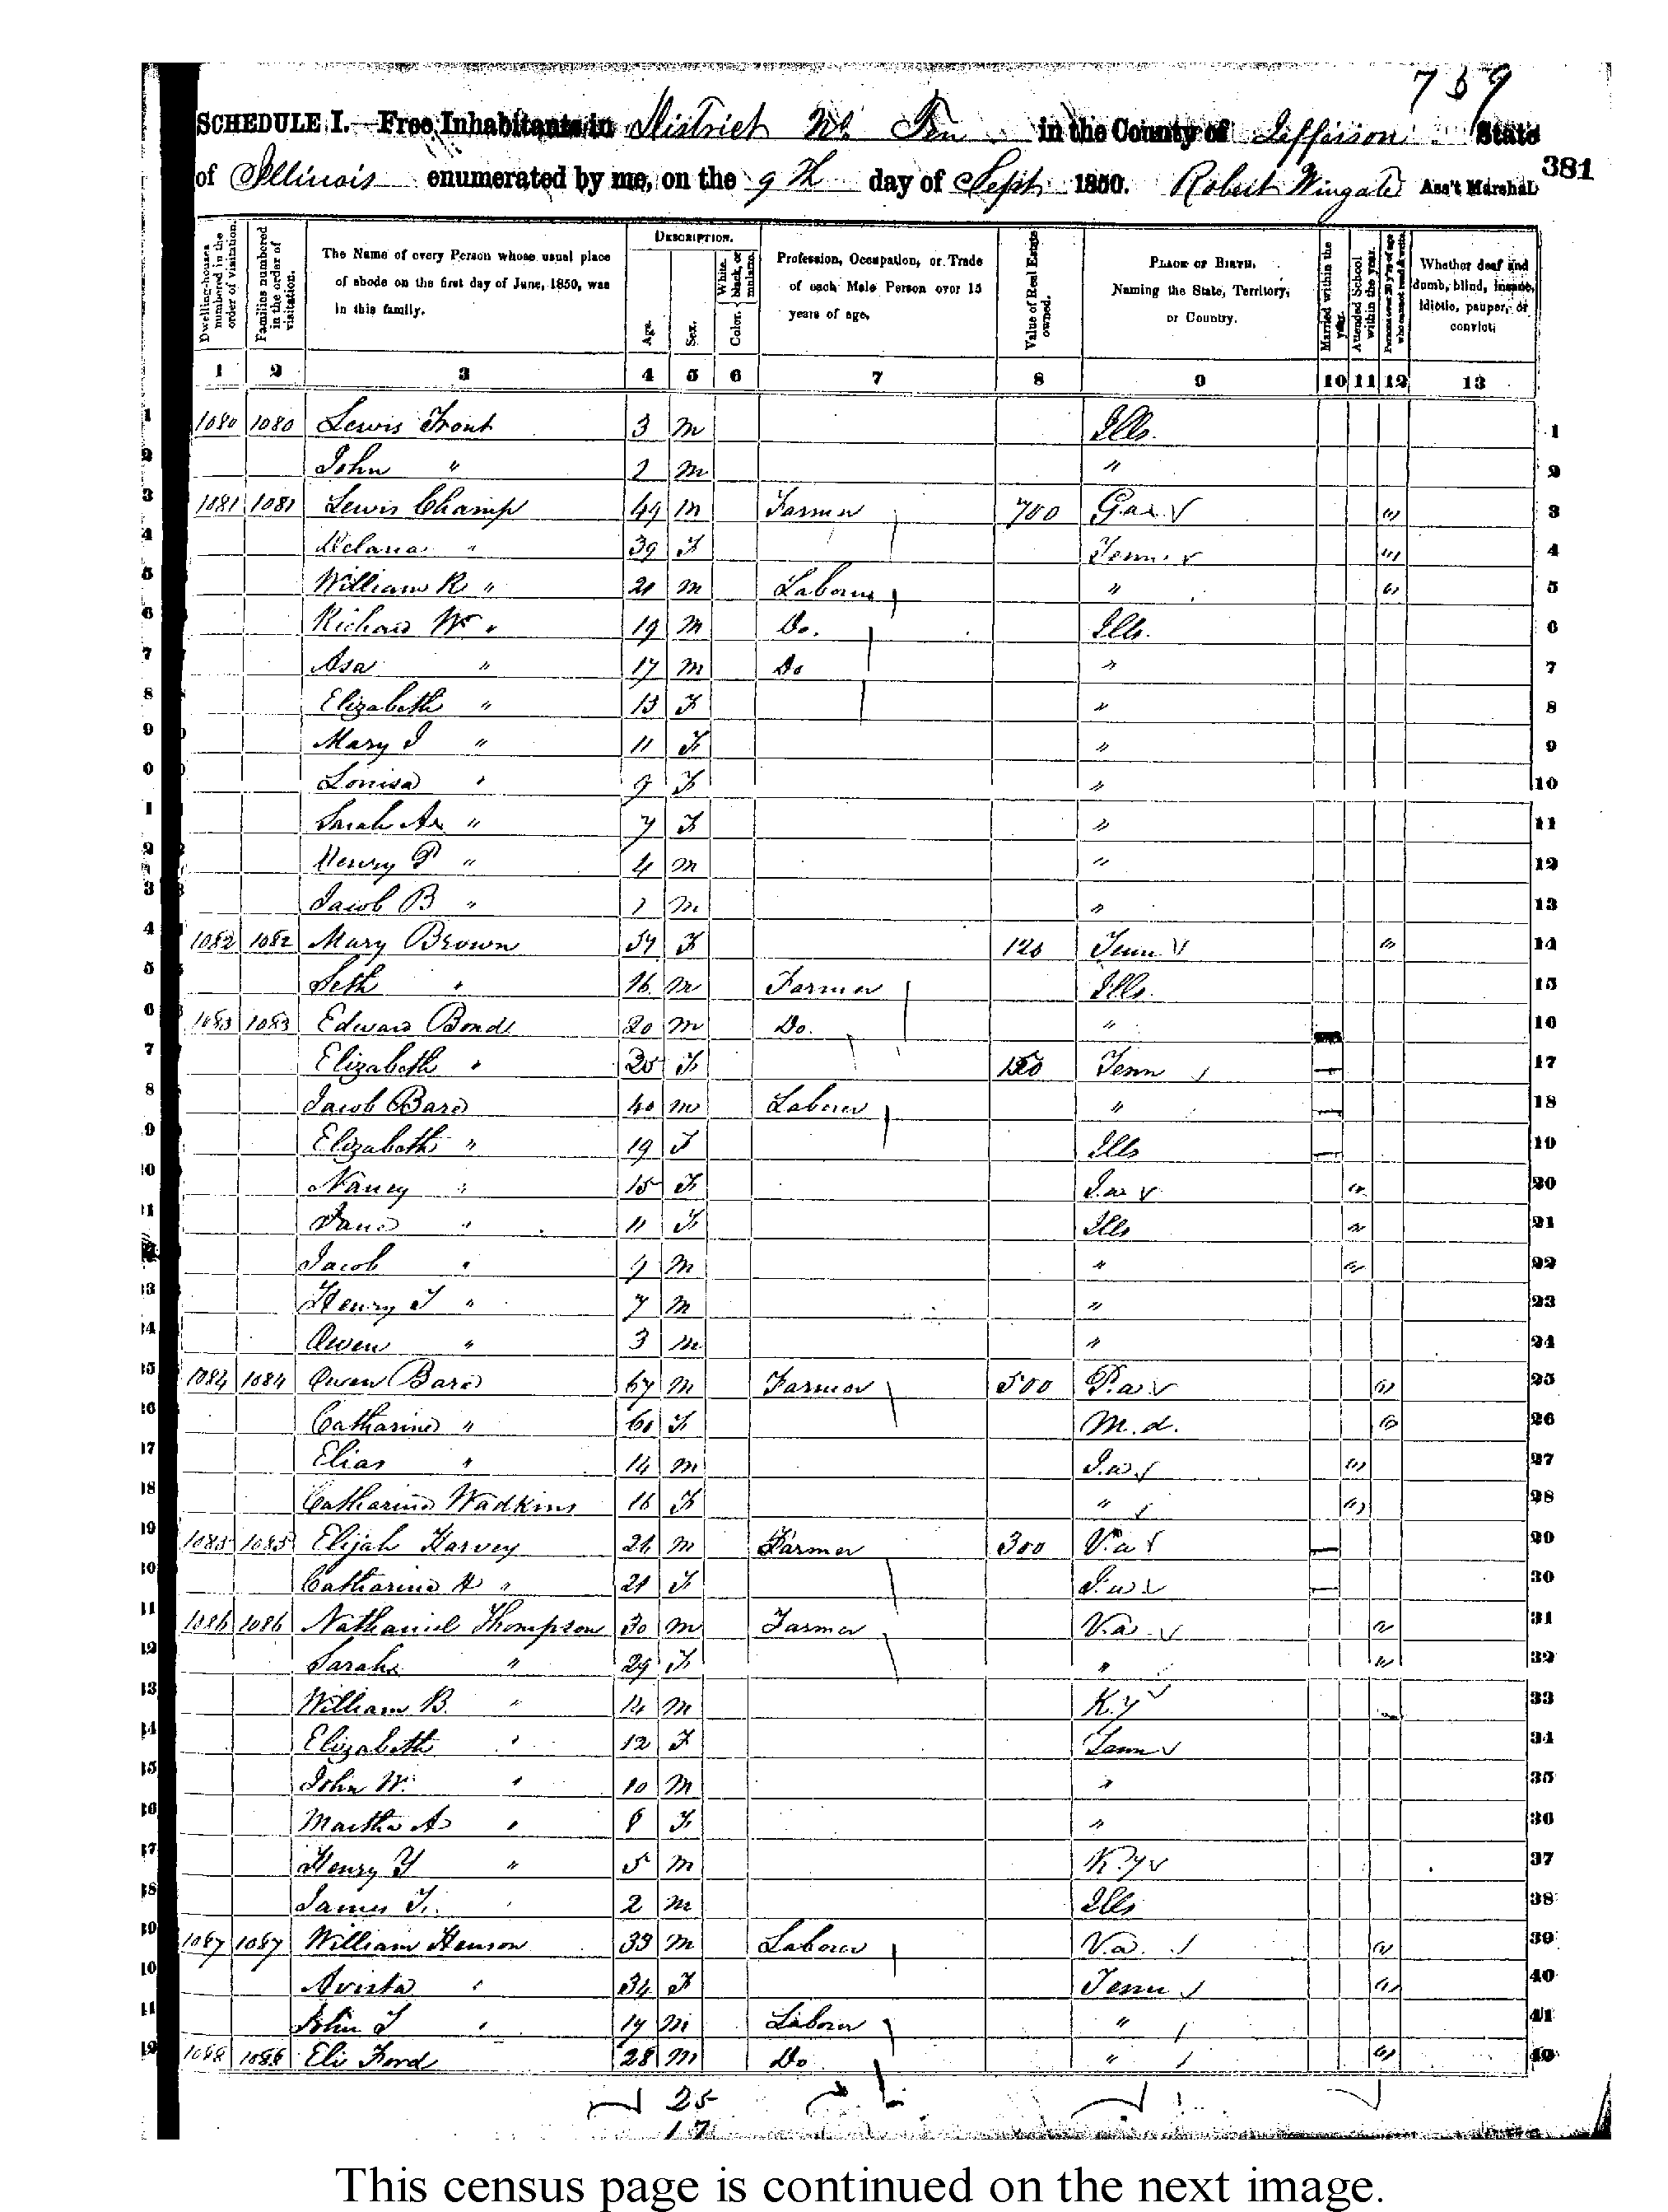 759
SCHEDULE I.—Free Inhabitants in District No. Ten in the County of Jefferson State
of Illinois enumerated by me, on the 9th day of Sept 1850. Robert Wingate Ass't Marshal. 381
Dwelling-houses numbered in the order of visitation.
Families numbered in the order of visitation.
The Name of every Person whose usual place of abode on the first day of June, 1850, was in this family.
DESCRIPTION.
Age.
Sex.
Color. White, black, or mulatto.
Profession, Occupation, or Trade of each Male Person over 15 years of age.
Value of Real Estate owned.
PLACE OF BIRTH, Naming the State, Territory, or Country.
Married within the year.
Attended School within the year.
Persons over 20 y'rs of age who cannot read & write.
Whether deaf and dumb, blind, insane, idiotic, pauper, or convict.
1 2 3 4 5 6 7 8 9 10 11 12 13
1 1080 1080 Lewis Front 3 M Ills. 1
2 John " 2 M " 2
3 1081 1081 Lewis Champ 49 M Farmer 700 Ga. 3
4 " 39 F Tenn. 4
5 William R " 21 M Laborer " 5
6 Richard W " 19 M Do. Ills. 6
7 Asa " 17 M Do " 7
8 Elizabeth " 13 F " 8
9 Mary J " 11 F " 9
10 Louisa " 9 F " 10
11 Sarah A " 7 F " 11
12 Henry P " 4 M " 12
13 Jacob B " 1 M " 13
14 1082 1082 Mary Brown 37 F 120 Tenn " 14
15 Seth " 16 M Farmer Ills. 15
16 1083 1083 Edward Bond 20 M Do. " 16
17 Elizabeth " 25 F 150 Tenn 17
18 Jacob Bare 40 M Laborer " 18
19 Elizabeth " 19 F Ills 19
20 Nancy " 15 F Ia " 20
21 Jane " 11 F Ills " 21
22 Jacob " 9 M " " 22
23 Henry T " 7 M " 23
24 Owen " 3 M " 24
25 1084 1084 Owen Bare 67 M Farmer 500 Pa. " 25
26 Catharine " 60 F M.d. " 26
27 Elias " 14 M Ia " 27
28 Catharine Wadkins 16 F " " 28
29 1085 1085 Elijah Harvey 26 M Farmer 300 Va 29
30 Catharine A " 21 F Ia 30
31 1086 1086 Nathaniel Thompson 30 M Farmer Va. " 31
32 Sarah " 29 F " " 32
33 William B. " 14 M K.y 33
34 Elizabeth " 12 F Tenn 34
35 John W. " 10 M " 35
36 Martha A " 8 F " 36
37 Henry Y " 5 M K.y 37
38 James F. " 2 M Ills 38
39 1087 1087 William Henson 33 M Laborer Va. " 39
40 Avista " 34 F Tenn " 40
41 John T " 17 M Laborer " 41
42 1088 1088 Eli Ford 28 M Do " " 42
25
17
This census page is continued on the next image.